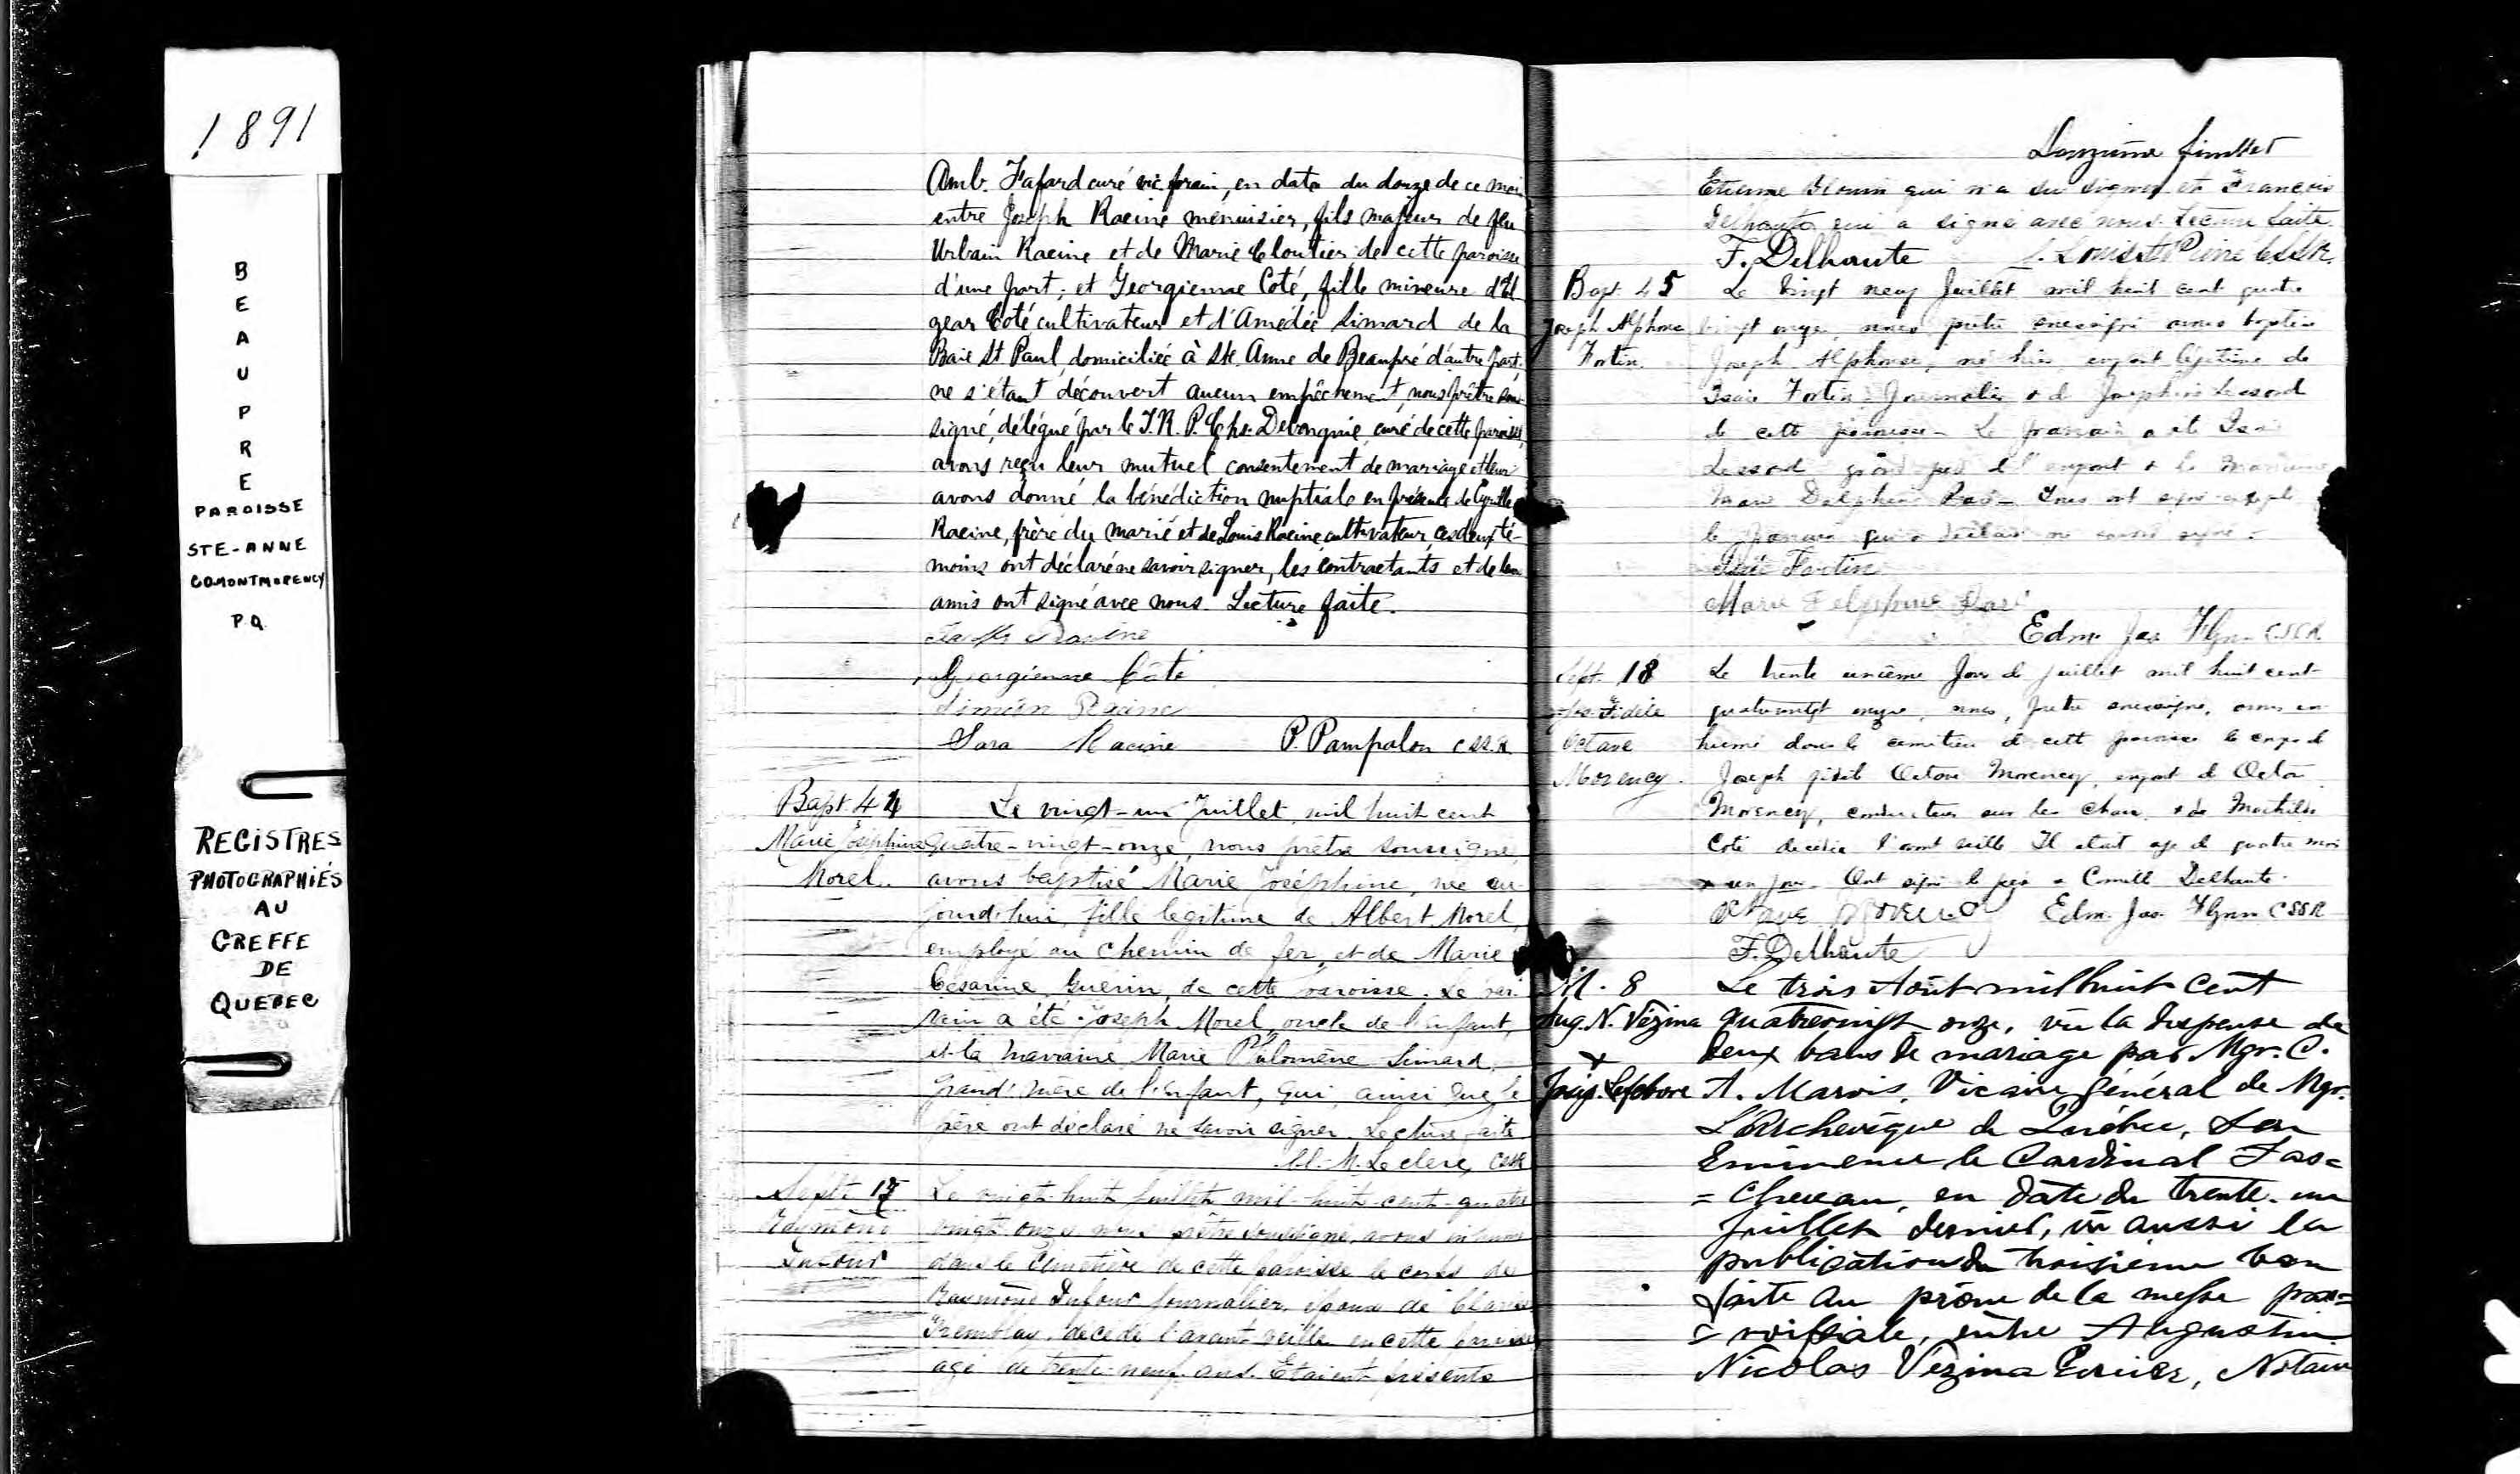 1891
B
E
A
U
P
R
E
PAROISSE
STE-ANNE
CO MONTMORENCY
P.Q.
REGISTRES
PHOTOGRAPHIÉS
AU
GREFFE
DE
QUEBEC
Amb. Fafard curé vic. forain, en date du douze de ce mois
entre Joseph Racine menuisier, fils majeur de feu
Urbain Racine et de Marie Cloutier de cette paroisse
d'une part; et Georgienne Coté, fille mineure d'El
gear Coté cultivateur et d'Amédée Simard de la
Baie St. Paul, domiciliée à Ste. Anne de Beaupré d'autre part,
ne s'etant découvert aucun empêchement, nous prêtre sous
signé, délégué par le T. R. P. Chs. Debongnie, curé de cette paroisse,
avons reçu leur mutuel consentement de mariage et leur
avons donné la bénédiction nuptiale en présence de Cyrille
Racine, frère du marié et de Louis Racine, cultivateur, ces deux té-
moins ont déclaré ne savoir signer, les contractants et de leurs
amis ont signé avec nous. Lecture faite.
Racine
Georgienne Côté
Siméon Racine
Sara Racine P. Pampalon C.SS.R
Bapt. 44
Marie Joséphine
Morel.
Le vingt-un Juillet, mil huit cent
quatre-vingt-onze, nous prêtre soussigné,
avons baptisé Marie Joséphine, née au-
jourd'hui, fille legitime de Albert Morel,
employé au chemin de fer, et de Marie
Césarine Guérin, de cette paroisse. Le par-
rain a été Joseph Morel, oncle de l'enfant,
et la marraine Marie Philomène Simard,
grand'mère de l'enfant, qui, ainsi que le
père ont déclaré ne savoir signer. Lecture faite
M. Leclerc, CSSR
Sépult. 17
Raymond
Dufour
Le vingt-huit Juillet mil-huit-cent-quatre
vingt-onze, nous prêtre soussigné, avons inhumé
dans le Cimetière de cette paroisse le corps de
Raymond Dufour journalier, époux de Clarisse
Tremblay, decédé l'avant-veille en cette paroisse
agé de trente-neuf ans. Etaient présents
Etienne Blouin qui n'a su signer et Francois
Delhaute qui a signé avec nous. Lecture faite.
F. Delhaute
Bapt. 45
Joseph Alphonse
Fortin.
Le vingt neuf Juillet mil huit cent quatre
vingt onze, nous prêtre soussigné avons baptisé
Joseph Alphonse, né hier, enfant légitime de
Isaïe Fortin Journalier & de Joséphine Lessard
de cette paroisse. Le parrain a été
Lessard grand père de l'enfant & la marraine
Marie Delphine Paré. Tous ont signé excepté
le parrain qui a déclaré ne savoir signer.
Fortin
Marie Delphine Paré
Edm. Jas. Flynn C.SS.R
Sépt. 18
Jos. Fidèle
Octave
Morency.
Le trente unième Jour de juillet mil huit cent
quatrevingt onze, nous, prêtre soussigné, avons in
humé dans le cimetière de cette paroisse le corps de
Joseph fidèle Octave Morency, enfant de Octave
Morency, conducteur sur les chars, & de Mathilde
Coté decédé l'avant veille. Il était agé de quatre mois
& un jour. Ont signé le père & Camille Delhaute.
Octave Morency Edm. Jas. Flynn CSSR
F. Delhaute
M. 8
Aug. N. Vézina
&
Lefebvre
Le trois Août mil huit cent
quatrevingt onze, vu la dispense de
deux bans de mariage par Mgr. C.
A. Marois, Vicaire général de Mgr.
L'Archevêque de Québec, Son
Eminence le Cardinal Tas=
=chereau, en date du trente-un
Juillet dernier, vu aussi la
publication du troisième ban
faite au prône de la messe pa=
=roissiale, entre Augustin
Nicolas Vézina Ecuier, Notaire